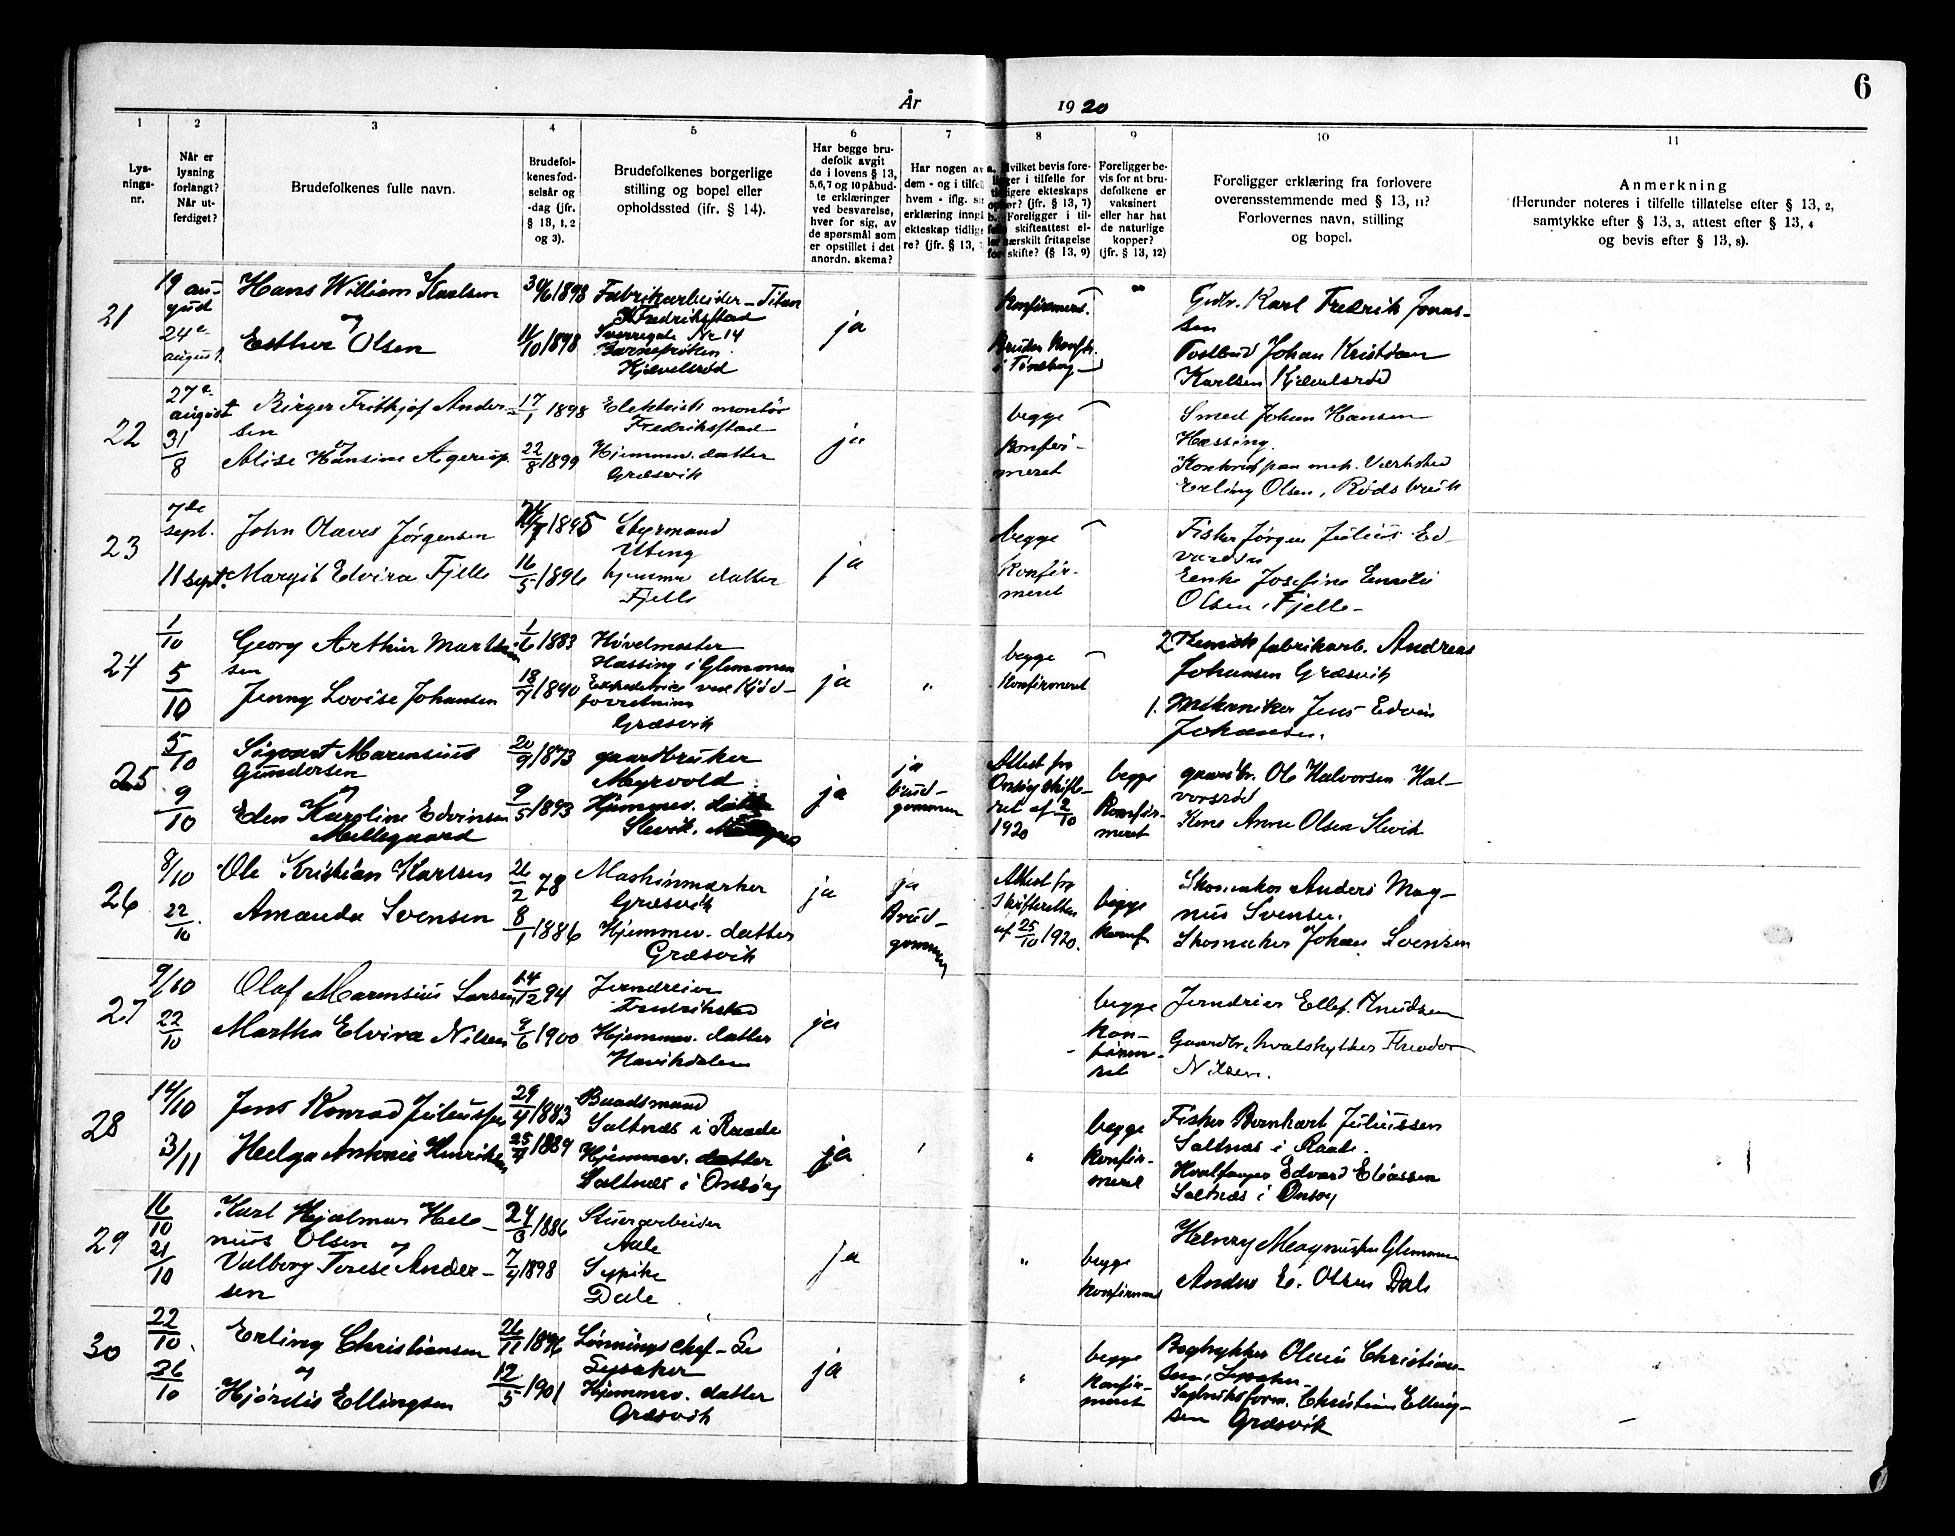 År 1920
6
1 2 3 4 5 6 7 8 9 10 11
Lys-
nings-
nr.
Når er
lysning
forlangt?
Når ut-
ferdiget?
Brudefolkenes fulle navn.
Brudefol-
kenes fød-
selsår og
-dag (jfr.
§ 13, 1, 2
og 3).
Brudefolkenes borgerlige
stilling og bopel eller
opholdssted (ifr. § 14).
Har begge bru-
defolk avgit
de i lovens § 13,
5, 6, 7 og 10 påbud-
te erklæringer
ved besvarelse,
hver for sig, av
de spørsmål som
er opstillet i det
anordn. skema?
Har nogen av
dem - og i tilfel
hvem - iflg. si
erklæring inng
ekteskap tidlig
re? (jfr. § 13,
Hvilket bevis fore-
ligger i tilfelle for
tidligere ekteskaps
ophør? (jfr. § 13, 7)
b. Foreligger i til-
felle skifteattest el-
ler særskilt fritagelse
for skifte? (§ 13, 9)
Foreligger be-
vis for at bru-
defolkene er
vaksinert
eller har hat
de naturlige
kopper?
(jfr. § 13, 12)
Foreligger erklæring fra forlovere
overensstemmende med § 13, 11?
Forlovernes navn, stilling
og bopel.
Anmerkning
(Herunder noteres i tilfelle tillatelse efter § 13, 2,
samtykke efter § 13, 3, attest efter § 13, 4
og bevis efter § 13, 8).
21
19 au-
gust
24de
august
Hans William Karlsen
og
Esther Olsen
30/6 1898
11/10 1898
Fabrikarbeider - Titan
Fredrikstad
Sverregate Nr 14
Barnefrøken
Kjævelsrød
ja
Konfirmert.
Bruden konfir.
i Tønsberg
"
Gvbr. Karl Fredrik Jonas-
sen
Postbud Johan Kristian
Karlsen Kjævelsrød
22
27de
august
31/8
Birger Frithjof Ander-
sen
og
Alise Hansine Agerup
17/1 1898
22/8 1899
Elektrisk montør
Fredrikstad
Hjemmev. datter
Græsvik
ja
begge
konfir-
meret
Smed Johan Hansen
Hassing.
mek. Værksted
Erling Olsen, Rødsbruk
23
7de
sept.
11 sept.
John Olaves Jørgensen
Margit Elvira Fjelle
1895
16/5 1896
Styrmand
Uteng
hjemmv datter
Fjelle
ja
begge
Konfir-
meret
Fisker Jørgen Julius Ed-
vardsen
Enke Josefine Emilie
Olsen, Fjelle -
24
1/10
5/10
Georg Arthur Martin-
sen
Jenny Lovise Johansen
1/6 1883
18/7 1890
Høvelmester
Hassing i Glemmen
Expeditrice ved Kjød-
forretning
Græsvik
ja
"
begge
Konfirmeret
2 Kemisk fabrikarb. Andreas
Johansen Græsvik
1. Mekaniker Jens Edvin
Johansen.
25
5/10
9/10
Sigvart Marensius
Gundersen
og
Eden Karoline Edvinsen
Mellegaard
20/9 1873
9/5 1893
gaardbruker
Myrvold
Hjemmev. datter
Slevik.
ja
ja
brud-
gommen
Attest fra
Onsøy skifte-
ret af 2/10
1920
begge
Konfir-
meret
gaardbr. Ole Halvorsen Hal-
vorsrød
Kone Anne Olsen Slevik
26
8/10
22/10
Ole Kristian Karlsen
Amanda Svensen
26/2 78
8/1 1886
Maskinmæker
Græsvik
Hjemmev. datter
Græsvik
ja
ja
Brud-
gommen
Attest fra
Skifteretten
af 25/10 1920.
begge
konf
Skomaker Anders Mag-
nus Svensen.
og
Skomaker Johan Svensen
27
9/10
22/10
Olaf Marensius Larsen
Martha Elvira Nilsen
14/12 94
9/6 1900
Jerndreier
Fredrikstad
Hjemmev. datter
Haukdalen
ja
begge
kon-
firme-
ret
Jerndreier Ellef Knudsen
Gaardbr., hvalskytter Theodor
Nilsen.
28
14/10
3/11
Jens Konrad Juliussen
Helga Antonie Henriksen
29/4 1883
25/4 1889
Baadsmand
Saltnæs i Raade
Hjemmev. datter
Saltnæs i Onsøy
ja
"
begge
konfir-
meret
Fisker Bernhart Juliussen
Saltnæs i Raade.
Hvalfanger Edvard Eliassen
Saltnæs i Onsøy
29
16/10
21/10
Karl Hjalmar Hele-
nius Olsen
og
Valborg Terese Ander-
sen
24/3 1886
7/4 1898
Stuerarbeider
Aale
Sypike
Dale
ja
"
begge
konfirmeret
Henry Magnusen Glemmen
Anders E. Olsen Dale
30
22/10
26/10
Erling Christiansen
og
Hjørdis Ellingsen
26/11 1896
12/5 1901
Lønningschef -
Lysaker
Hjemmev. datter
Græsvik
ja
"
begge
konfir-
meret
Bogtrykker Olaus Christian-
sen, Lysaker
Sagbruksform. Christian Elling-
sen Græsvik